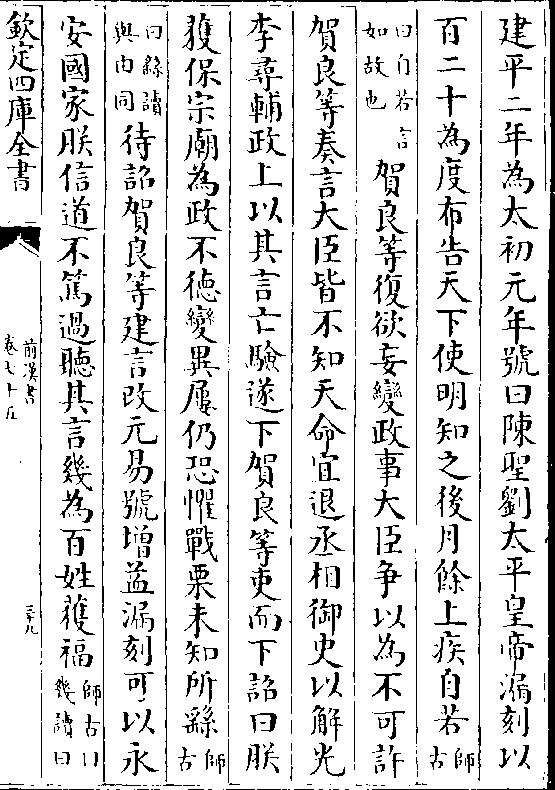 建平二年為太初元年號曰陳聖劉太平皇帝漏刻以
百二十為度布告天下使明知之後月餘上疾自若師古
曰自若言如故也賀良等復欲妄變政事大臣争以為不可許
賀良等奏言大臣皆不知天命宜退丞相御史以解光
李尋輔政上以其言亡驗遂下賀良等吏而下詔曰朕
獲保宗廟為政不徳變異屢仍恐懼戰栗未知所繇師古
曰繇讀與由同待詔賀良等建言改元易號增益漏刻可以永
安國家朕信道不篤過聽其言幾為百姓獲福師古曰幾讀曰
欽定四庫全書
前漢書
卷七十五
三十九